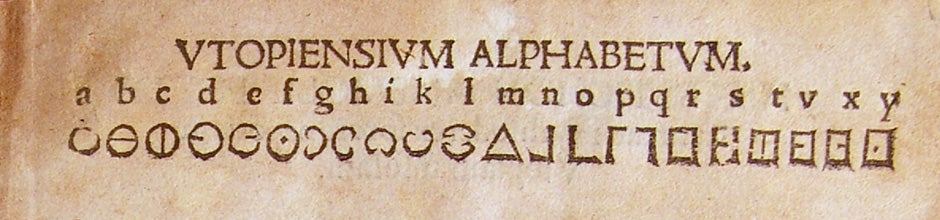 VTOPIENSIVM ALPHABETVM.
a b c d e f g h i k l m n o p q r s t v x y